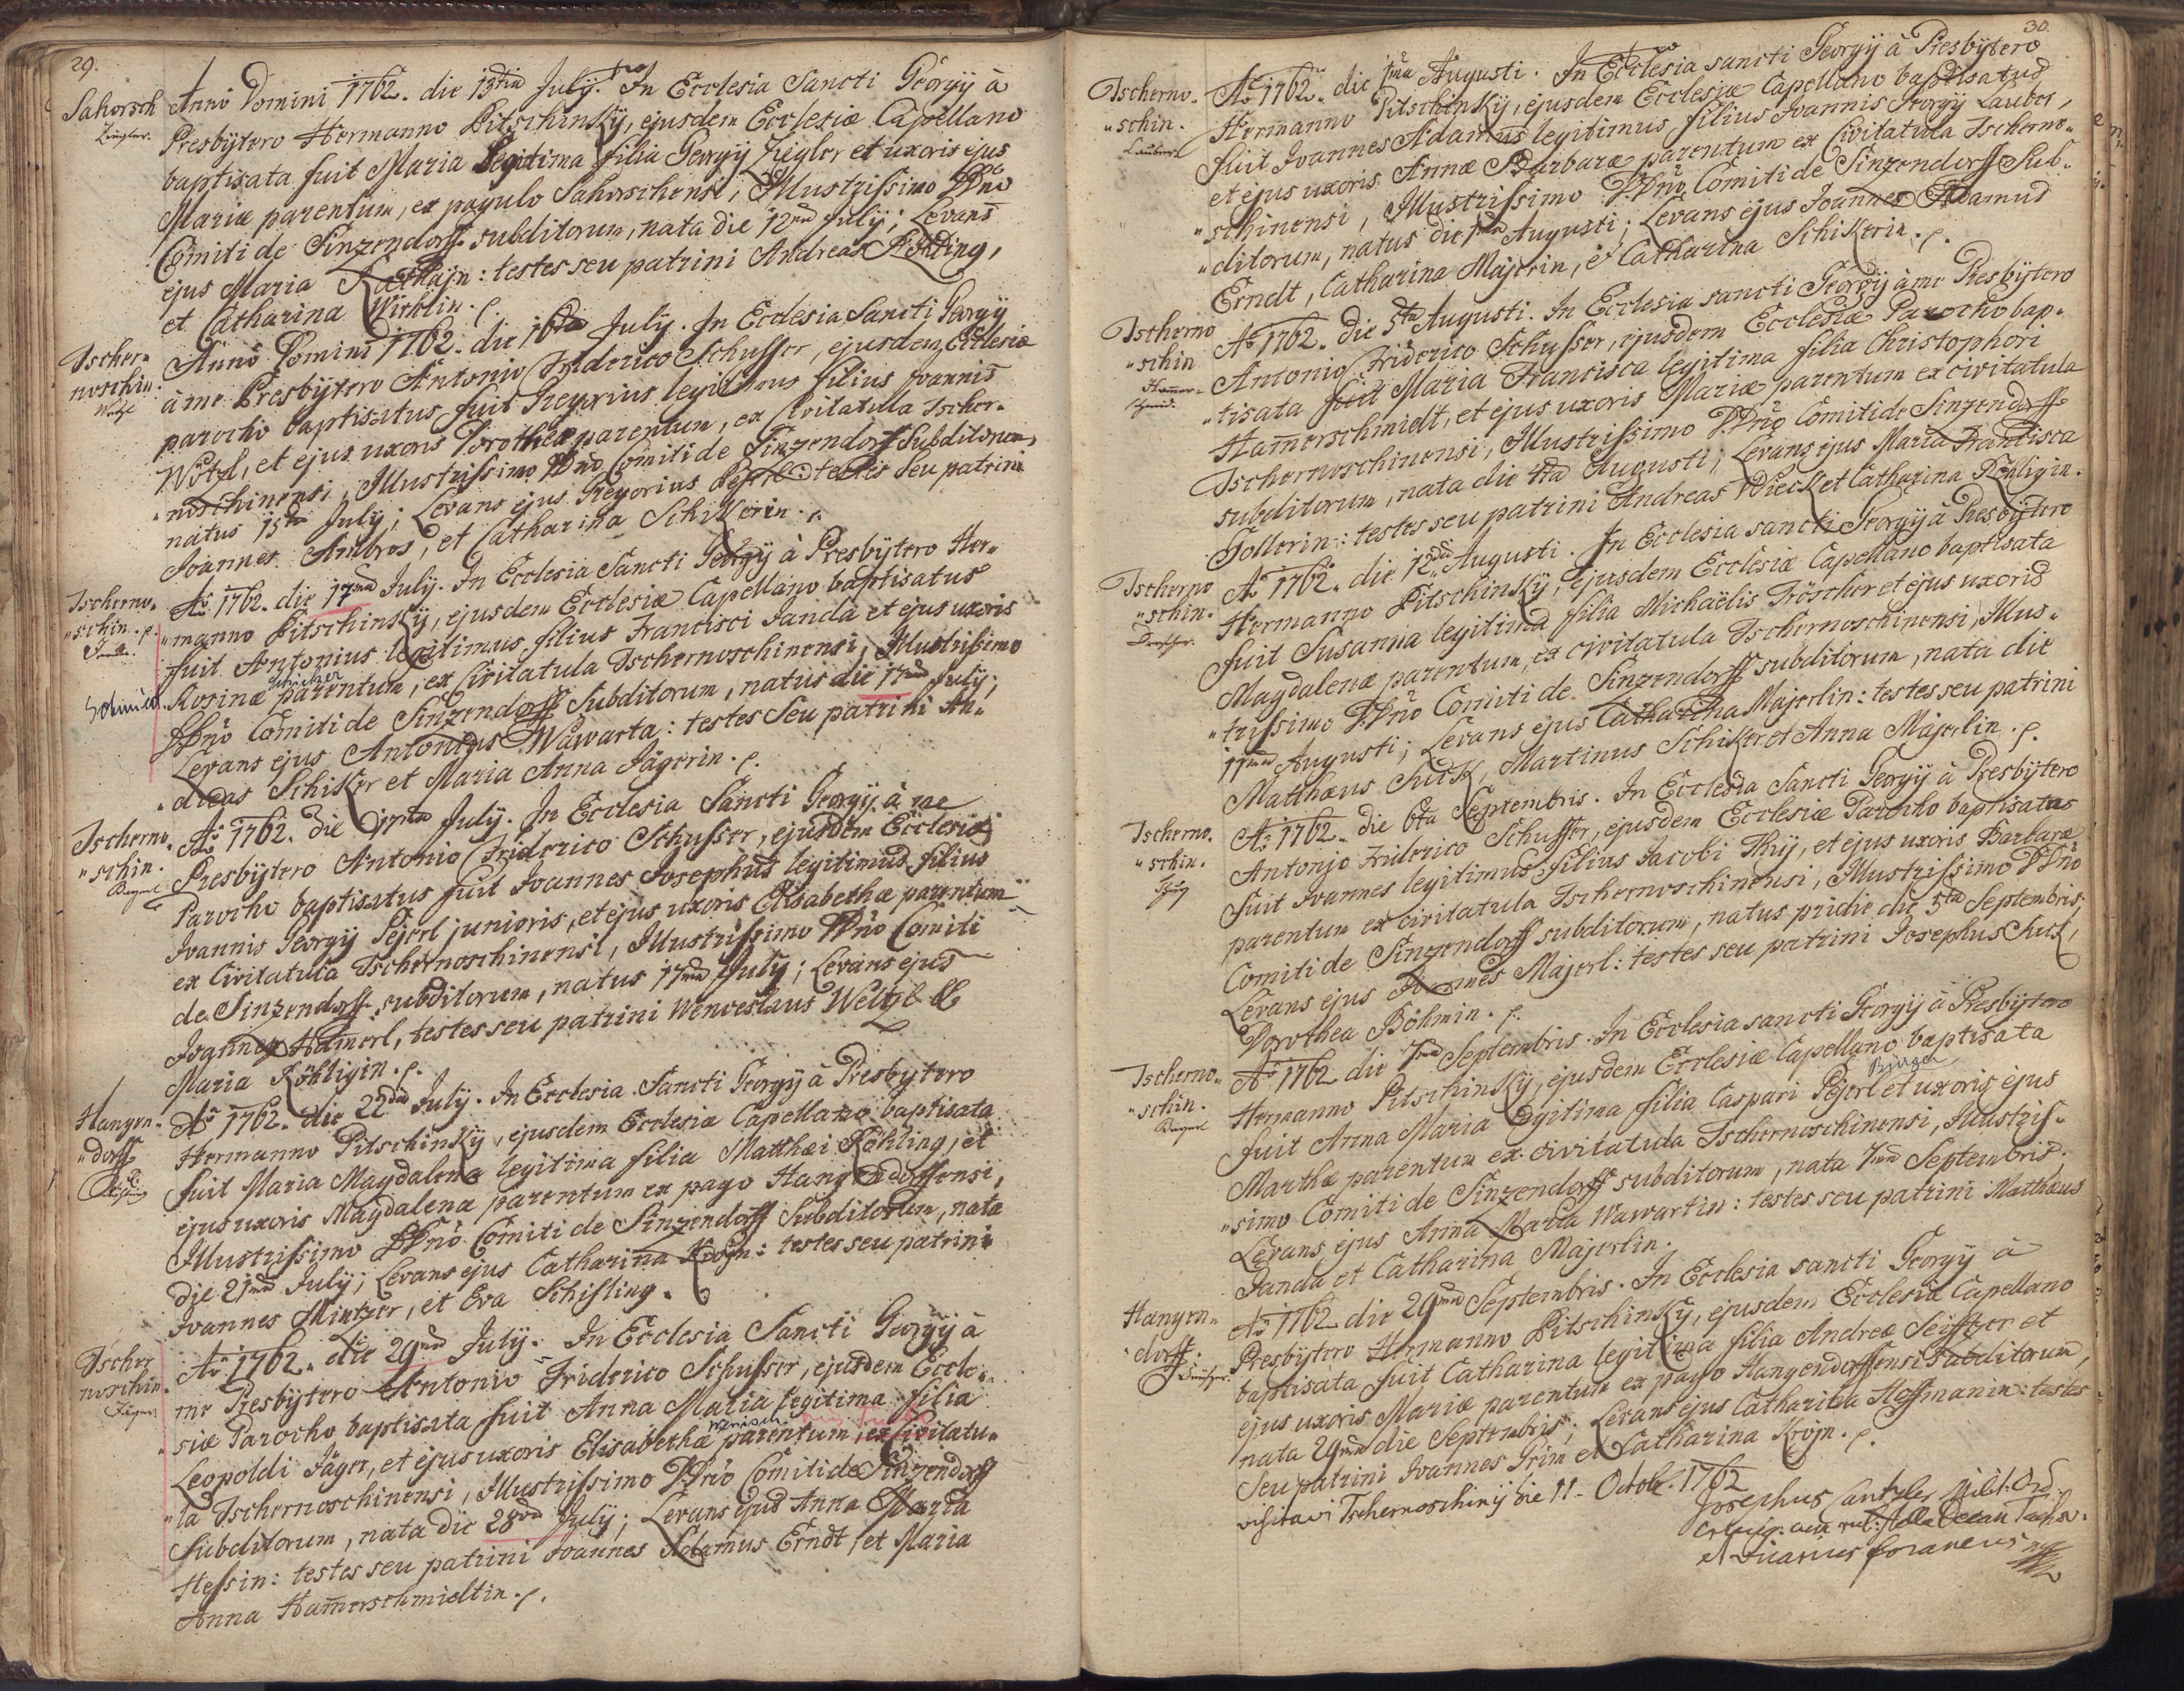 29.
Sahorsch
Ziegler.
Anno Domini 1762. die 13tia July. In Ecclesia Sancti Georgÿ à
Presbÿtero Hermanno Pitschinskÿ, ejusdem Ecclesiæ Capellano
baptisata fuit Maria Legitima filia Georgÿ Ziegler et uxoris ejus
Mariæ parentum, ex pagulo Sahorschensi, Illustrissimo DDno
Comiti de Sinzendorff subditorum, nata die 12ma July; Levans
ejus Maria testes seu patrini Andreas
et Catharina Wirklin. p.
Tscher=
noschin.
Anno Domini 1762. die 16ta July. In Ecclesia Sancti Georgÿ
à me Presbÿtero Antonio Friderico Schusser, ejusdem Ecclesiæ
parocho baptisatus fuit Gregorius legitimus filius Joannis
Wötzl, et ejus uxoris Dorotheæ parentum, ex Civitatula Tscher=
"noschinensi, Illustrissimo DDno Comiti de Sinzendorff Subditorum,
natus 15ta July; Levans ejus Gregorius testes seu patrini
Joannes Ambros, et Catharina Schikerin. p.
Tscherno=
"schin. p.
Janda.
Ao 1762. die 17ma July. In Ecclesia Sancti Georgÿ à Presbÿtero Her=
"manno Pitschinskÿ, ejusdem Ecclesiæ Capellano baptisatus
fuit Antonius legitimus filius Francisci Janda et ejus uxoris
Rosinæ parentum, ex Civitatula Tschernoschinensi, Illustrissimo
DDno Comiti de Sinzendorff Subditorum, natus die 17ma July;
Levans ejus Antonius Wawarta: testes seu patrini An=
"dreas Schiker et Maria Anna Jägerin. p.
Tscherno=
"schin.
Ao 1762. die 17ma July. In Ecclesia Sancti Georgÿ à me
Presbÿtero Antonio Friderico Schusser, ejusdem Ecclesiæ
Parocho baptisatus fuit Joannes Josephus legitimus filius
Joannis Georgÿ Pejerl junioris, et ejus uxoris Elisabethæ parentum
ex Civitatula Tschernoschinensi, Illustrissimo DDno Comiti
de Sinzendorff subditorum, natus 17ma July; Levans ejus
Joannes Hamerl, testes seu patrini Wenceslaus Weltzl et
Maria Röhligin. p.
Hangen=
"dorff
Ao 1762. die 22da July. In Ecclesia Sancti Georgÿ à Presbÿtero
Hermanno Pitschinskÿ, ejusdem Ecclesiæ Capellano baptisata
fuit Maria Magdalena legitima filia Matthæi Röhling, et
ejus uxoris Magdalenæ parentum ex pago Hangendorffensi,
Illustrissimo DDno Comiti de Sinzendorff Subditorum, nata
die 21ma July; Levans ejus Catharina Krojn: testes seu patrini
Joannes Mintzer, et Eva Schisling.
Tscher
noschin.
Jäger
Ao 1762. die 29na July. In Ecclesia Sancti Georgÿ à
me Presbÿtero Antonio Friderico Schusser, ejusdem Eccle=
"siæ Parocho baptisata fuit Anna Maria legitima filia
Leopoldi Jäger, et ejus uxoris Elisabethæ parentum, ex Civitatu=
"la Tschernoschinensi, Illustrissimo DDno Comiti de Sinzendorff
Subditorum, nata die 28va July; Levans ejus Anna Maria
Hessin: testes seu patrini Joannes Adamus Erndt, et Maria
Anna Hamerschmidtin. p.
30.
Tscherno=
"schin.
Lauber
Ao 1762. die 1ma Augusti. In Ecclesia sancti Georgÿ à Presbÿtero
Hermanno Pitschinskÿ, ejusdem Ecclesiæ Capellano baptisatus
fuit Joannes Adamus legitimus filius Joannis Georgÿ Lauber,
et ejus uxoris Annæ Barbaræ parentum ex Civitatula Tscherno=
"schinensi, Illustrissimo DDno Comiti de Sinzendorff Sub=
"ditorum, natus die 1ma Augusti; Levans ejus Joannes Adamus
Erndt, Catharina Majerin, et Catharina Schikerin. p.
Tscherno
"schin
Hamer=
schmid.
Ao 1762. die 5ta Augusti. In Ecclesia sancti Georgÿ à me Presbÿtero
Antonio Friderico Schusser, ejusdem Ecclesiæ Parocho bap=
"tisata fuit Maria Francisca legitima filia Christophori
Hamerschmidt, et ejus uxoris Mariæ parentum ex civitatula
Tschernoschinensi, Illustrissimo DDno Comiti de Sinzendorff
subditorum, nata die 4ta Augusti, Levans ejus Maria Francisca
Tollerin: testes seu patrini Andreas Wieck et Catharina Röhligin.
Tscherno
"schin.
Ao 1762. die 12da Augusti. In Ecclesia sancti Georgÿ à Presbÿtero
Hermanno Pitschinskÿ, ejusdem Ecclesiæ Capellano baptisata
fuit Susanna legitima filia Michaëlis Tröscher et ejus uxoris
Magdalenæ parentum, ex civitatula Tschernoschinensi, Illus=
"trissimo DDno Comiti de Sinzendorff subditorum, nata die
11ma Augusti; Levans ejus Catharina Majerlin: testes seu patrini
Matthæus Martinus Schiker et Anna Majerlin. p.
Tscherno=
"schin.
Ao 1762. die 6ta Septembris. In Ecclesia Sancti Georgÿ à Presbÿtero
Antonio Friderico Schusser, ejusdem Ecclesiæ Parocho baptisatus
fuit Joannes legitimus filius Jacobi Thÿ, et ejus uxoris Barbaræ
parentum ex civitatula Tschernoschinensi, Illustrissimo DDno
Comiti de Sinzendorff subditorum, natus pridie die 5ta Septembris;
Levans ejus Joannes Majerl: testes seu patrini Josephus
Dorothea Böhmin. p.
Tscherno=
"schin.
Ao 1762 die 7ma Septembris. In Ecclesia sancti Georgÿ à Presbÿtero
Hermanno Pitschinskÿ, ejusdem Ecclesiæ Capellano baptisata
fuit Anna Maria legitima filia Caspari Pejerl et uxoris ejus
Marthæ parentum ex civitatula Tschernoschinensi, Illustris=
"simo Comiti de Sinzendorff subditorum, nata 7ma Septembris.
Levans ejus Anna Maria Wawartin: testes seu patrini Matthæus
Janda et Catharina Majerlin.
Hangen=
"dorff.
Ao 1762 die 29na Septembris. In Ecclesia sancti Georgÿ à
Presbÿtero Hermanno Pitschinskÿ, ejusdem Ecclesiæ Capellano
baptisata fuit Catharina legitima filia Andreæ Seifftzer et
ejus uxoris Mariæ parentum ex pago Hangendorffensi subditorum,
nata 29na die Septembris; Levans ejus Catharina Hoffmanin: testes
Seu patrini Joannes Grim et Catharina Krojn. p.
visitavi Tschernoschinÿ die 11. Octobr. 1762
Josephus
et Vicarius foraneus